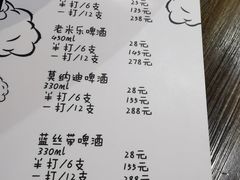 半打/6支 135元
一打/12支 258元
老米乐啤酒
450ml 28元
半打/6支 145元
一打/12支 278元
莫纳迪啤酒
330ml 28元
半打/6支 155元
一打/12支 288元
蓝丝带啤酒
330ml 28元
半打/6支 155元
一打/12支 288元